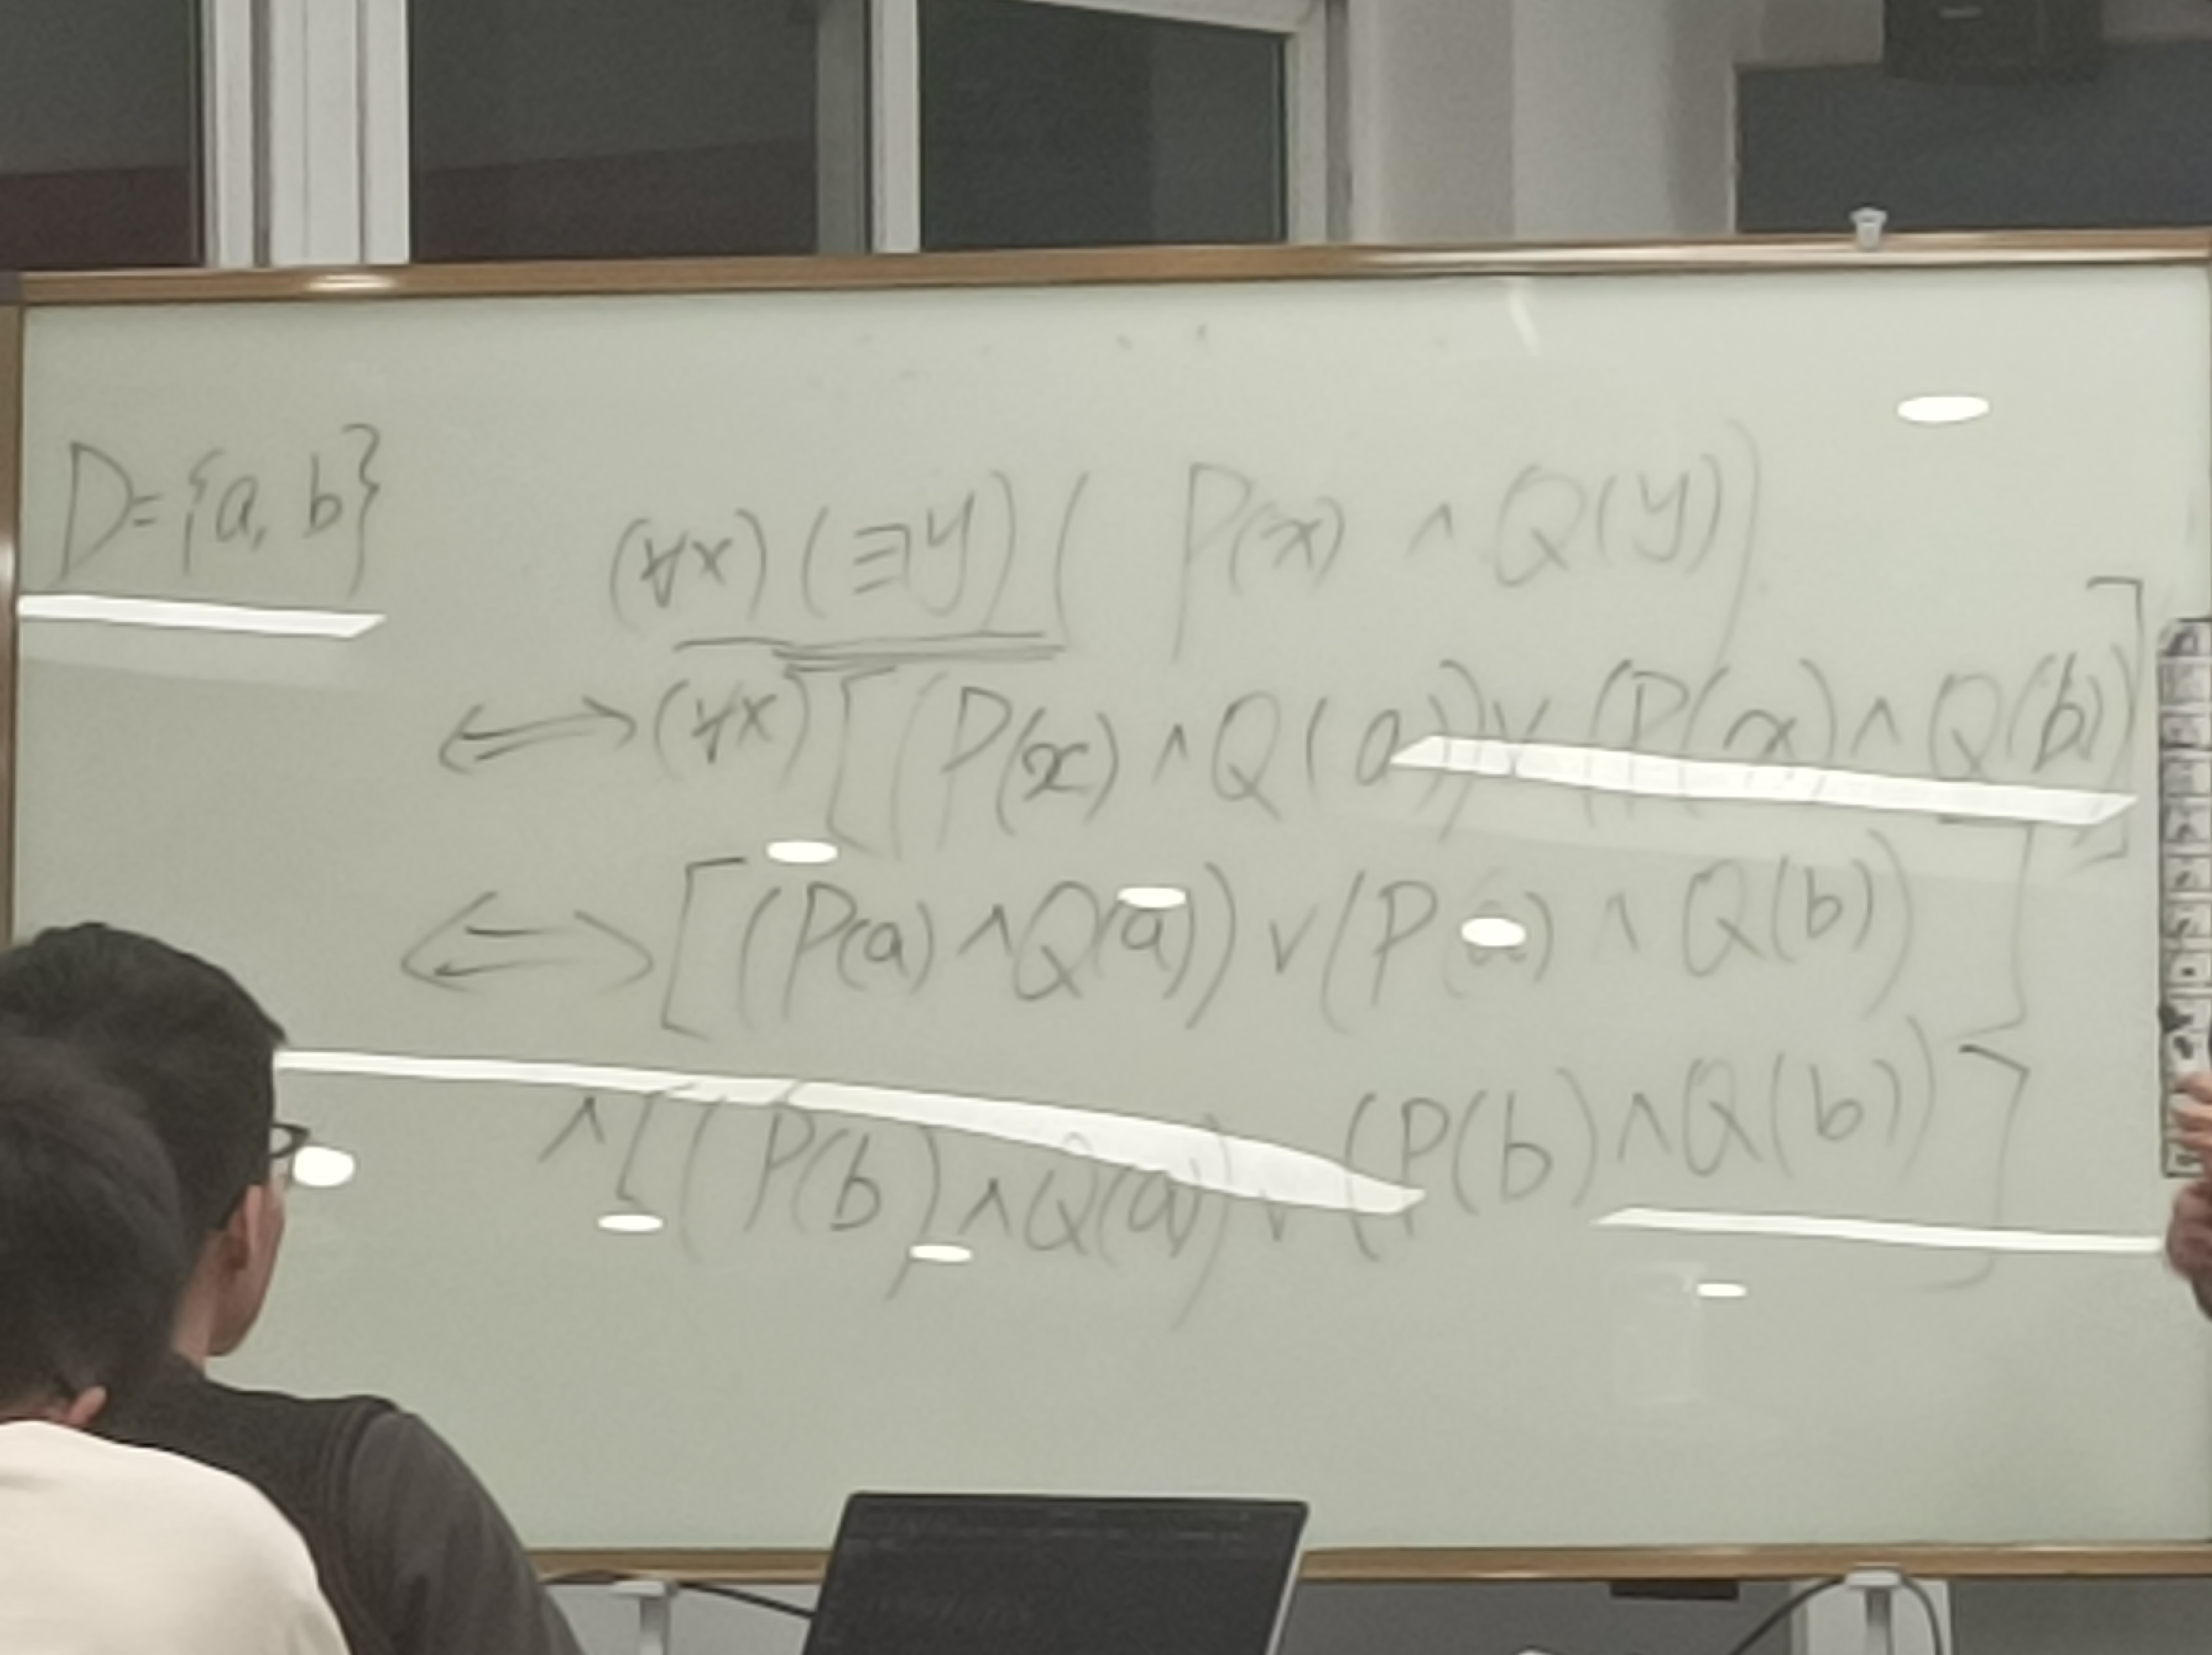 D={a, b}
(∀x)(∃y)( P(x) ∧ Q(y))
⟺ (∀x)[(P(x) ∧ Q(a)) ∨ (P(x) ∧ Q(b))]
⟺ [(P(a) ∧ Q(a)) ∨ (P(a) ∧ Q(b))]
∧ [(P(b) ∧ Q(a)) ∨ (P(b) ∧ Q(b))]